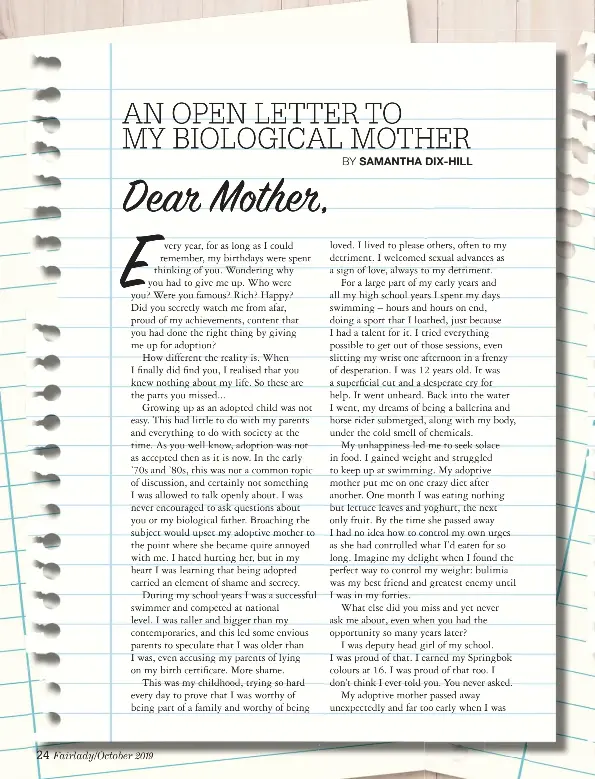 AN OPEN LETTER TO
MY BIOLOGICAL MOTHER
BY SAMANTHA DIX-HILL
Dear Mother,
Every year, for as long as I could
remember, my birthdays were spent
thinking of you. Wondering why
you had to give me up. Who were
you? Were you famous? Rich? Happy?
Did you secretly watch me from afar,
proud of my achievements, content that
you had done the right thing by giving
me up for adoption?
How different the reality is. When
I finally did find you, I realised that you
knew nothing about my life. So these are
the parts you missed...
Growing up as an adopted child was not
easy. This had little to do with my parents
and everything to do with society at the
time. As you well know, adoption was not
as accepted then as it is now. In the early
'70s and '80s, this was not a common topic
of discussion, and certainly not something
I was allowed to talk openly about. I was
never encouraged to ask questions about
you or my biological father. Broaching the
subject would upset my adoptive mother to
the point where she became quite annoyed
with me. I hated hurting her, but in my
heart I was learning that being adopted
carried an element of shame and secrecy.
During my school years I was a successful
swimmer and competed at national
level. I was taller and bigger than my
contemporaries, and this led some envious
parents to speculate that I was older than
I was, even accusing my parents of lying
on my birth certificate. More shame.
This was my childhood, trying so hard
every day to prove that I was worthy of
being part of a family and worthy of being
loved. I lived to please others, often to my
detriment. I welcomed sexual advances as
a sign of love, always to my detriment.
For a large part of my early years and
all my high school years I spent my days
swimming – hours and hours on end,
doing a sport that I loathed, just because
I had a talent for it. I tried everything
possible to get out of those sessions, even
slitting my wrist one afternoon in a frenzy
of desperation. I was 12 years old. It was
a superficial cut and a desperate cry for
help. It went unheard. Back into the water
I went, my dreams of being a ballerina and
horse rider submerged, along with my body,
under the cold smell of chemicals.
My unhappiness led me to seek solace
in food. I gained weight and struggled
to keep up at swimming. My adoptive
mother put me on one crazy diet after
another. One month I was eating nothing
but lettuce leaves and yoghurt, the next
only fruit. By the time she passed away
I had no idea how to control my own urges
as she had controlled what I'd eaten for so
long. Imagine my delight when I found the
perfect way to control my weight: bulimia
was my best friend and greatest enemy until
I was in my forties.
What else did you miss and yet never
ask me about, even when you had the
opportunity so many years later?
I was deputy head girl of my school.
I was proud of that. I earned my Springbok
colours at 16. I was proud of that too. I
don't think I ever told you. You never asked.
My adoptive mother passed away
unexpectedly and far too early when I was
24 Fairlady/October 2019